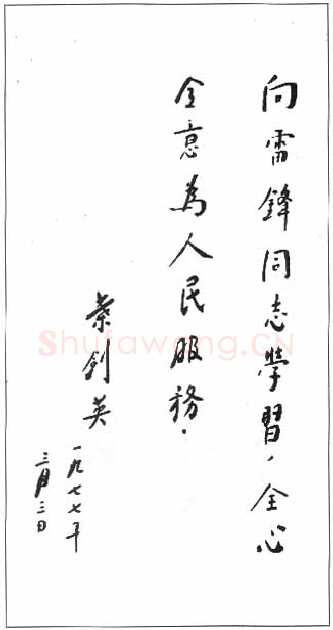 向雷鋒同志學習，全心
全意為人民服務．
葉劍英
一九七七年
三月三日
Shufawang.CN